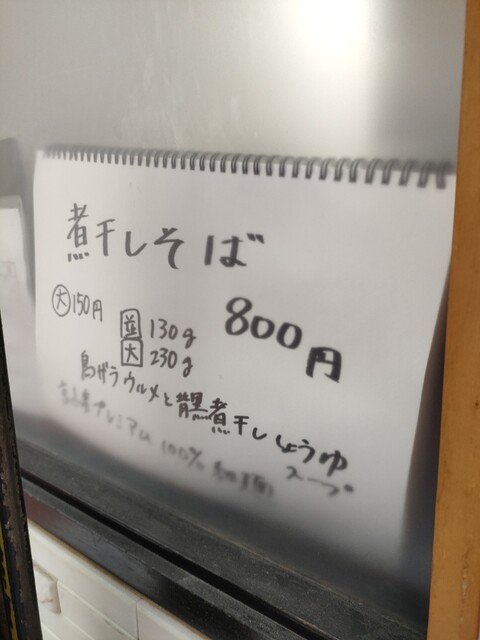 煮干しそば
800円
大 150円
並 130g
大 230g
鳥ガラウルメと背黒煮干ししょうゆ
スープ
プレミアム 100% 細麺